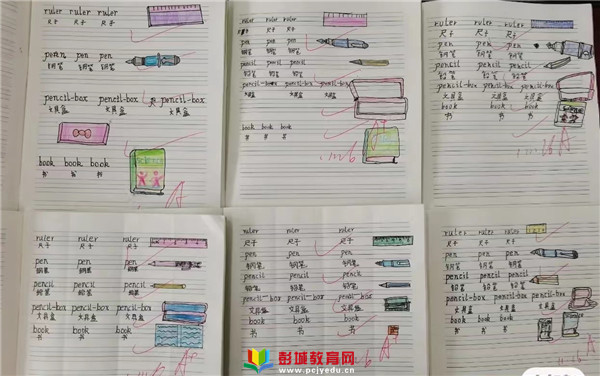 ruler ruler ruler
尺子 尺子 尺子
pen pen
钢笔 钢笔 钢笔
pencil-box pencil-box pencil-box
文具盒 文具盒
book book book
书 书 书
A
ruler ruler ruler
尺子 尺子 尺子
pen pen pen
钢笔 钢笔 钢笔
pencil pencil pencil
铅笔 铅笔 铅笔
pencil-box pencil-box pencil-box
文具盒 文具盒 文具盒
book book book
书 书 书
ruler ruler ruler
尺子 尺子 尺子
pen pen pen
钢笔 钢笔 钢笔
pencil pencil pencil
铅笔 铅笔 铅笔
pencil-box pencil-box pencil-box
文具盒 文具盒 文具盒
book book book
书 书 书
A
ruler ruler ruler
尺子 尺子 尺子
pen pen pen
钢笔 钢笔 钢笔
pencil pencil pencil
铅笔 铅笔 铅笔
pencil-box pencil-box pencil-box
文具盒 文具盒 文具盒
book book book
书 书 书
ruler ruler ruler
尺子 尺子 尺子
pen pen pen
钢笔 钢笔 钢笔
pencil pencil pencil
铅笔 铅笔 铅笔
pencil-box pencil-box pencil-box
文具盒 文具盒 文具盒
book book book
书 书 书
ruler ruler ruler
尺子 尺子 尺子
pen pen pen
钢笔 钢笔 钢笔
pencil pencil pencil
铅笔 铅笔 铅笔
pencil-box pencil-box pencil-box
文具盒 文具盒 文具盒
book book book
书 书 书
A
彭城教育网
www.pcjyedu.cn